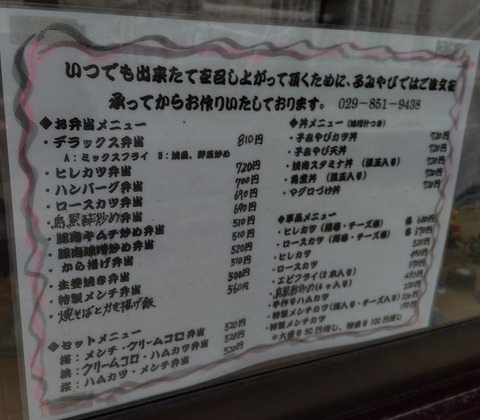 いつでも出来たてを召し上がって頂くために、みやびではご注文を
承ってからお作りいたしております。 029-851-9438
◆お弁当メニュー
・デラックス弁当 810円
A:ミックスフライ B:焼肉、野菜炒め
・ヒレカツ弁当 720円
・ハンバーグ弁当 700円
・ロースカツ弁当 690円
・鳥黒酢炒め弁当 690円
・豚肉キムチ炒め弁当 510円
・豚肉味噌炒め弁当 510円
・から揚げ弁当 520円
・生姜焼き弁当 510円
・特製メンチ弁当 500円
・焼そばとから揚げ飯 560円
◆セットメニュー
メンチ・クリームコロ弁当 520円
クリームコロ・ハムカツ弁当 520円
ハムカツ・メンチ弁当 520円
◆丼メニュー (味噌汁つき)
・みやびカツ丼 720円
・みやび天丼 720円
・焼肉スタミナ丼 (温玉入り) 720円
・角煮丼 (温玉入り) 720円
・マグロづけ丼 720円
◆単品メニュー
・ヒレカツ (チーズ巻)
・ロースカツ (チーズ巻)
・ヒレカツ
・ロースカツ
・エビフライ (2本入り)
・鳥黒酢炒め (6ヶ入り)
・手作りハムカツ
・特製メンチカツ (チーズ入り)
・特製メンチカツ
*大盛り50円増し、特盛り100円増し